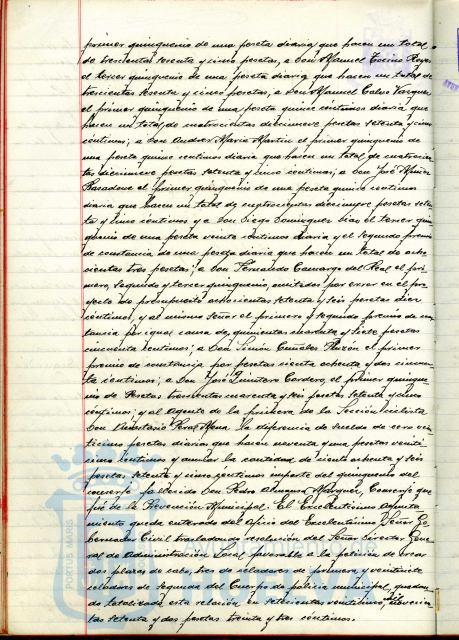 primer quinquenio de una peseta diaria que hacen un total
de trescientas sesenta y cinco pesetas, a Don Manuel Tocino Rojas
el tercer quinquenio de una peseta diaria que hacen un total de
trescientas sesenta y cinco pesetas; a Don Manuel Calvo Vazquez
el primer quinquenio de una peseta quince centimos diaria que
hacen un total de cuatrocientas diecinueve pesetas setenta y cinco
centimos; a Don Andres Maria Martin el primer quinquenio de
una peseta quince centimos diaria que hacen un total de cuatrocien-
tas diecinueve pesetas setenta y cinco centimos; a Don José
el primer quinquenio de una peseta quince centimos
diaria que hacen un total de cuatrocientas diecinueve pesetas seten-
ta y cinco centimos y a Don Diego Dominguez Diaz el tercer quin-
quenio de una peseta veinte centimos diaria y el segundo premio
de constancia de una peseta diaria que hacen un total de ocho-
cientas tres pesetas; a Don Fernando Camargo del Real el pri-
mero, segundo y tercer quinquenio, omitidos por error en el pro-
yecto de presupuesto ochocientas setenta y seis pesetas diez
centimos, y al mismo señor el primero y segundo premio de cons-
tancia por igual causa de quinientas cuarenta y siete pesetas
cincuenta centimos; a Don Simón Pinzón el primer
premio de constancia por pesetas ciento ochenta y dos cincuen-
ta centimos; a Don José Quintero Cordero, el primer quinque-
nio de Pesetas trescientas cuarenta y seis pesetas setenta y cinco
centimos; y al Agente de la primera de la Sección ciclista
Don la diferencia de sueldo de cero vein-
ticinco pesetas diarias que hacen noventa y una pesetas veinti-
cinco centimos y anular la cantidad de ciento ochenta y seis
pesetas setenta y cinco centimos importe del quinquenio del
conserje fallecido Don Pedro Almansa Marquez, Conserje que
fué de la Prevención Municipal. El Excelentisimo Ayunta-
miento queda enterado del oficio del Excelentisimo Señor Go-
bernador Civil trasladando resolución del Señor Director Gene-
ral de Administración Local favorable a la petición de crear
dos plazas de cabo, tres de celadores de primera y veintisiete
celadores de segunda del Cuerpo de policía municipal, quedan-
do totalizada esta relación en setecientas veintiun mil novecien-
tas setenta y dos pesetas treinta y tres centimos.
PORTUS MARIS